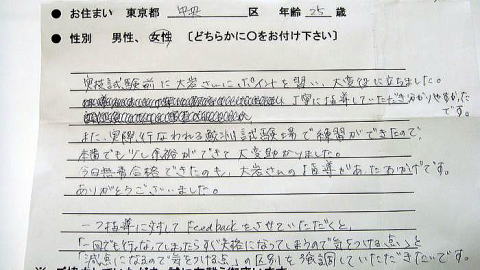 ● お住まい 東京都 中央 区 年齢 25 歳
● 性別 男性、 女性 〔どちらかに〇をお付け下さい〕
実技試験前に大岩さんにポイントを習い、大変役に立ちました。
丁寧に指導していただき分かりやすかった
です。
また、実際行なわれる試験場で練習ができたので、
本番でも少し余裕ができて大変助かりました。
今日無事合格できたのも、大岩さんの指導があったおかげです。
ありがとうございました。
一つ指導に対してFeedbackをさせていただくと、
「一回でも行なってしまったらすぐ失格になってしまうので気をつける点」と
「減点になるので気をつける点」の区別を強調していただきたいです。